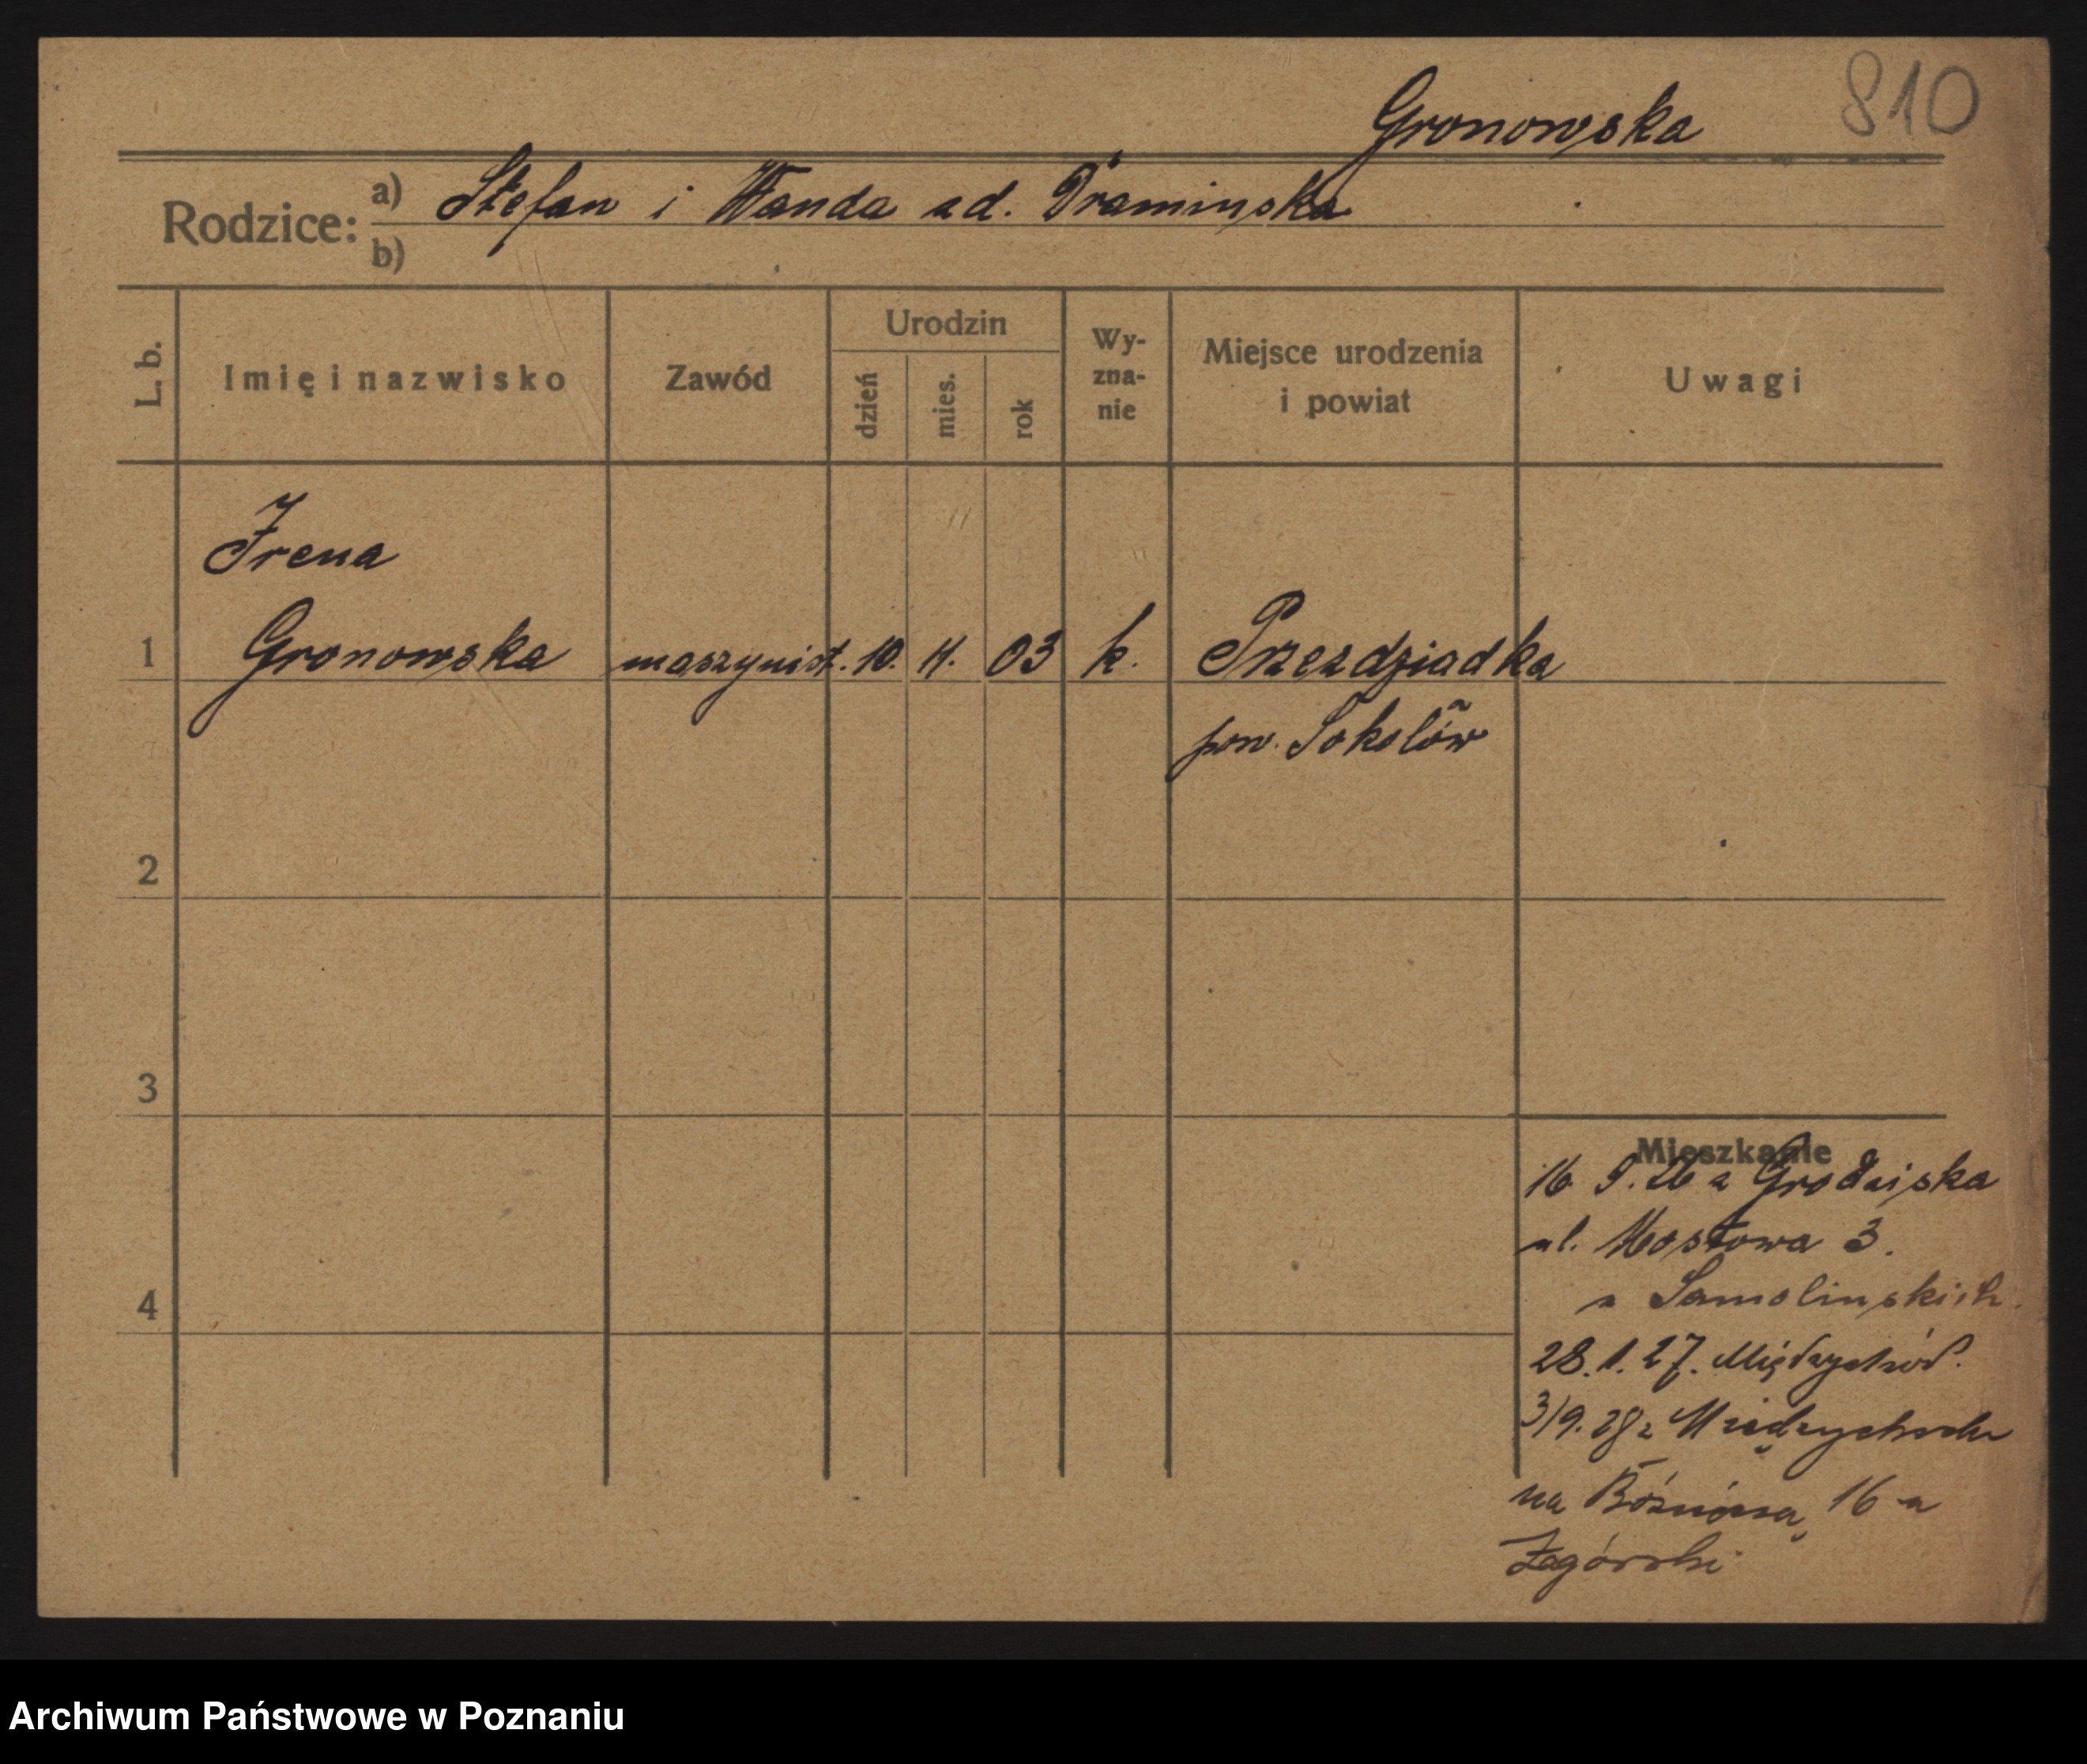 810
Gronowska
Rodzice: a) Stefan i Wanda zd. Draminska
b)
L. b. Imię i nazwisko Zawód Urodzin dzień mies. rok Wy-zna-nie Miejsce urodzenia i powiat Uwagi
Irena
1 Gronowska maszynist. 10. 11. 03 k. Przezdziadka
pow. Sokolów
2
3
4
Mieszkanie
16 9. 26 z Grodziska
ul. Mostowa 3.
u Samolinskich.
28.1.27. Międzychód.
3/9.28 z Międzychodu
na 16 u
Zagórski
Archiwum Państwowe w Poznaniu